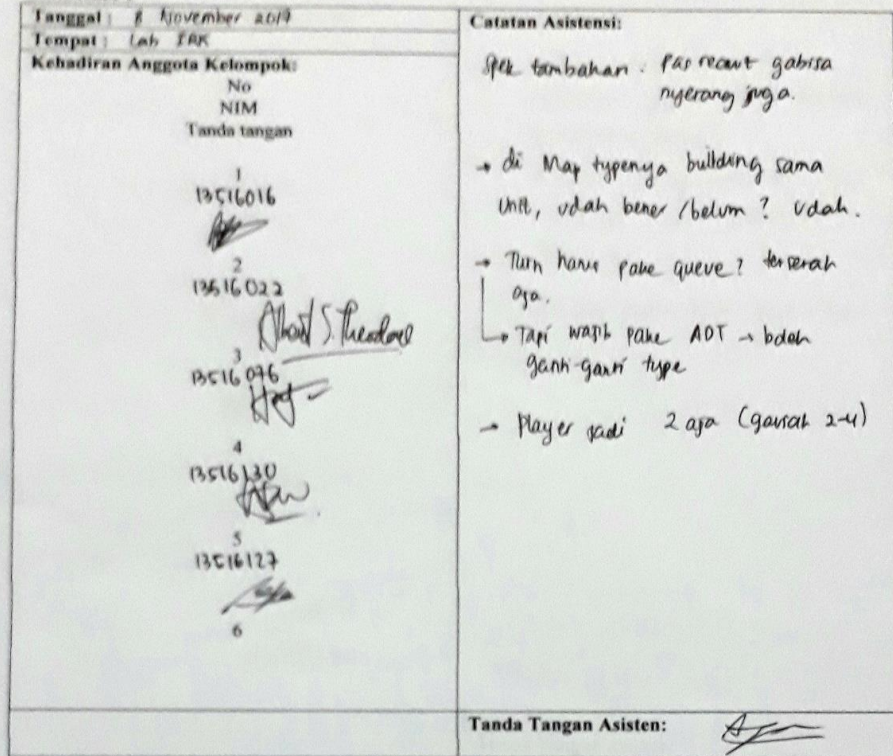 Tanggal : 8 November 2017
Tempat : Lab IRK
Kehadiran Anggota Kelompok:
No
NIM
Tanda tangan
1
13516016
2
13516022
3
13516076
4
13516130
5
13516127
6
Catatan Asistensi:
Spek tambahan : Pas recruit gabisa
nyerang juga.
→ di Map typenya building sama
Unit, udah bener /belum ? Udah.
→ Turn harus pake queue? terserah
aja.
↳ Tapi wajib pake ADT → boleh
ganti-ganti type
→ Player jadi 2 aja (gausah 2-4)
Tanda Tangan Asisten: